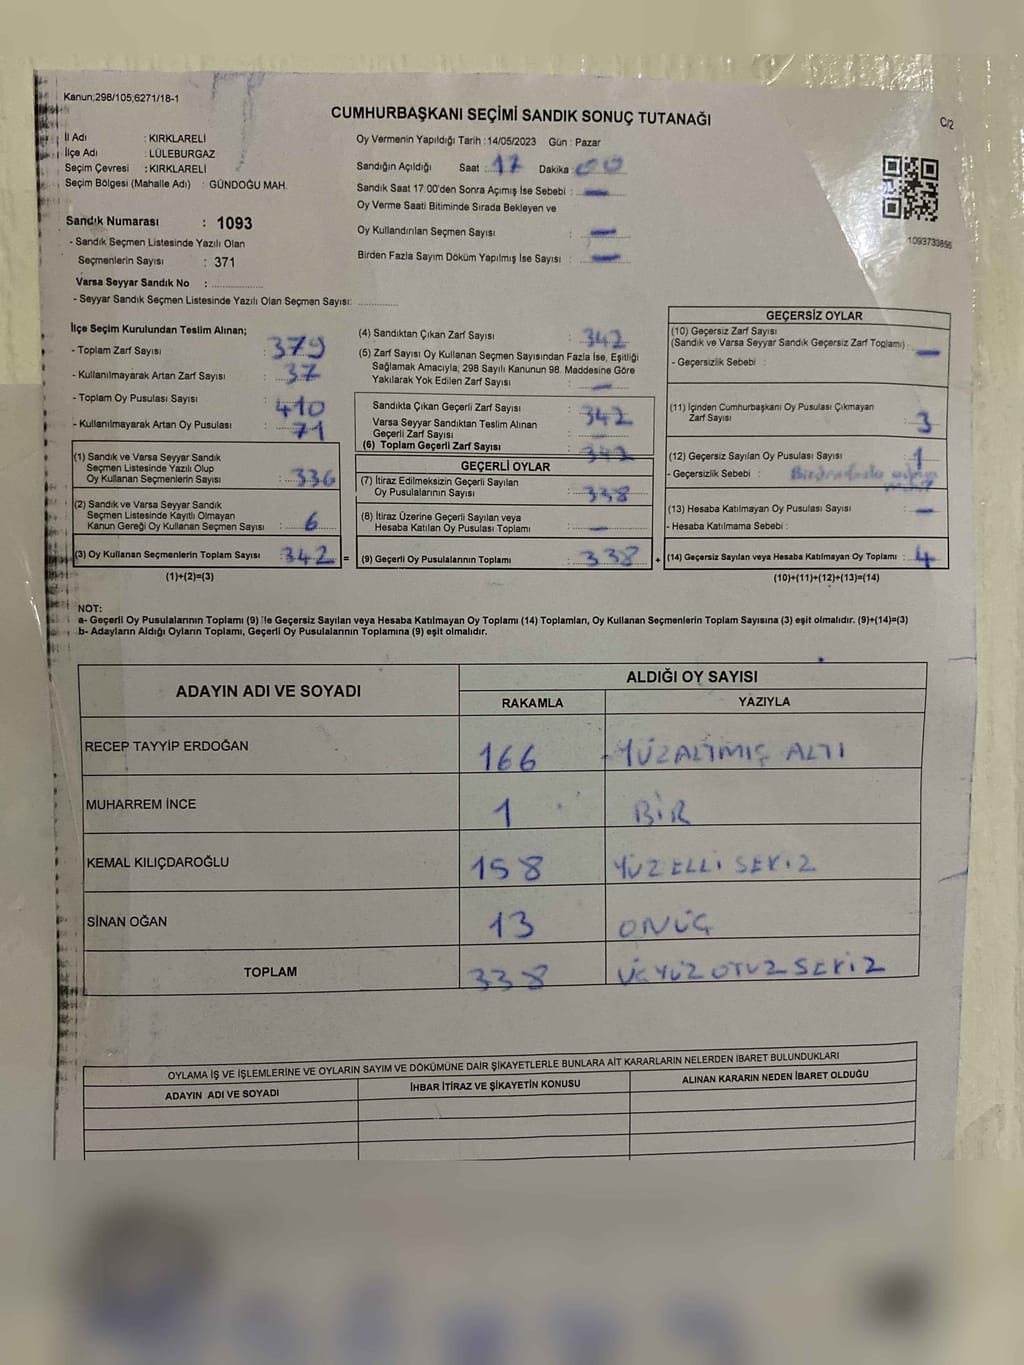 Kanun;298/105,6271/18-1
CUMHURBAŞKANI SEÇİMİ SANDIK SONUÇ TUTANAĞI
C/2
İl Adı : KIRKLARELİ
İlçe Adı : LÜLEBURGAZ
Seçim Çevresi : KIRKLARELİ
Seçim Bölgesi (Mahalle Adı) : GÜNDOĞU MAH.
Sandık Numarası : 1093
- Sandık Seçmen Listesinde Yazılı Olan
Seçmenlerin Sayısı : 371
Varsa Seyyar Sandık No :
- Seyyar Sandık Seçmen Listesinde Yazılı Olan Seçmen Sayısı:
Oy Vermenin Yapıldığı Tarih :14/05/2023 Gün : Pazar
Sandığın Açıldığı Saat : 17 Dakika : 00
Sandık Saat 17:00'den Sonra Açımış İse Sebebi : —
Oy Verme Saati Bitiminde Sırada Bekleyen ve
Oy Kullandırılan Seçmen Sayısı : —
Birden Fazla Sayım Döküm Yapılmış İse Sayısı : —
1093733856
İlçe Seçim Kurulundan Teslim Alınan;
- Toplam Zarf Sayısı : 379
- Kullanılmayarak Artan Zarf Sayısı : 37
- Toplam Oy Pusulası Sayısı : 410
- Kullanılmayarak Artan Oy Pusulası : 71
(1) Sandık ve Varsa Seyyar Sandık
Seçmen Listesinde Yazılı Olup
Oy Kullanan Seçmenlerin Sayısı : 336
(2) Sandık ve Varsa Seyyar Sandık
Seçmen Listesinde Kayıtlı Olmayan
Kanun Gereği Oy Kullanan Seçmen Sayısı : 6
(3) Oy Kullanan Seçmenlerin Toplam Sayısı : 342 =
(1)+(2)=(3)
(4) Sandıktan Çıkan Zarf Sayısı : 342
(5) Zarf Sayısı Oy Kullanan Seçmen Sayısından Fazla İse, Eşitliği
Sağlamak Amacıyla; 298 Sayılı Kanunun 98. Maddesine Göre
Yakılarak Yok Edilen Zarf Sayısı : —
Sandıkta Çıkan Geçerli Zarf Sayısı : 342
Varsa Seyyar Sandıktan Teslim Alınan
Geçerli Zarf Sayısı :
(6) Toplam Geçerli Zarf Sayısı : 342
GEÇERLİ OYLAR
(7) İtiraz Edilmeksizin Geçerli Sayılan
Oy Pusulalarının Sayısı : 338
(8) İtiraz Üzerine Geçerli Sayılan veya
Hesaba Katılan Oy Pusulası Toplamı : —
(9) Geçerli Oy Pusulalarının Toplamı : 338 +
GEÇERSİZ OYLAR
(10) Geçersiz Zarf Sayısı
(Sandık ve Varsa Seyyar Sandık Geçersiz Zarf Toplamı) : —
- Geçersizlik Sebebi :
(11) İçinden Cumhurbaşkanı Oy Pusulası Çıkmayan
Zarf Sayısı : 3
(12) Geçersiz Sayılan Oy Pusulası Sayısı : 1
- Geçersizlik Sebebi :
(13) Hesaba Katılmayan Oy Pusulası Sayısı : —
- Hesaba Katılmama Sebebi :
(14) Geçersiz Sayılan veya Hesaba Katılmayan Oy Toplamı : 4
(10)+(11)+(12)+(13)=(14)
NOT:
a- Geçerli Oy Pusulalarının Toplamı (9) İle Geçersiz Sayılan veya Hesaba Katılmayan Oy Toplamı (14) Toplamları, Oy Kullanan Seçmenlerin Toplam Sayısına (3) eşit olmalıdır. (9)+(14)=(3)
b- Adayların Aldığı Oyların Toplamı, Geçerli Oy Pusulalarının Toplamına (9) eşit olmalıdır.
ADAYIN ADI VE SOYADI
ALDIĞI OY SAYISI
RAKAMLA YAZIYLA
RECEP TAYYİP ERDOĞAN 166 YÜZALTMIŞ ALTI
MUHARREM İNCE 1 BİR
KEMAL KILIÇDAROĞLU 158 YÜZELLİ SEKİZ
SİNAN OĞAN 13 ONÜÇ
TOPLAM 338 ÜÇYÜZ OTUZ SEKİZ
OYLAMA İŞ VE İŞLEMLERİNE VE OYLARIN SAYIM VE DÖKÜMÜNE DAİR ŞİKAYETLERLE BUNLARA AİT KARARLARIN NELERDEN İBARET BULUNDUKLARI
ADAYIN ADI VE SOYADI İHBAR İTİRAZ VE ŞİKAYETİN KONUSU ALINAN KARARIN NEDEN İBARET OLDUĞU